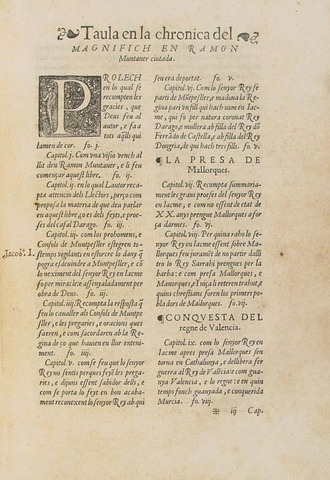 Taula en la chronica del
MAGNIFICH EN RAMON
Muntaner ciutada.
PROLECH
en lo qual se
recompten les
gracies, que
Deus feu al
autor, e fa a
tots aq̃lls qui
lamen de cor. fo. j.
Capitol .j. Com vna visio vench al
llit deu Ramon Muntaner, e li feu
començar aquest llibre. fo. ij.
Capitol .ij. en lo qual Lautor recapta
attencio dels Llectors, perça com
proposa la materia de que deu parlar
en aquest llibre, ço es dels feyts, e proeses
del casal Darago. fo. iij.
Capitol .iij. com los prohomens, e
Consols de Muntpesller estegren tostemps
vigilants en estorcre lo dany q̃
pogra esdeuenir a Muntpesller, e cõ
lo neximent del senyor Rey en Iacme
fo per miracle e assenyaladament per
obra de Deus. fo. iij.
Iacob. I.
Capitol .iiij. recompta la resposta q̃
feu lo caualler als Consols de Muntpesller,
e les pregaries, e oracions ques
faeren, e com sacordaren ab la Regina
de ço que hauien en llur enteniment.
fo. iij.
Capitol .v. com se feu que lo senyor
Rey no sentis perques feyẽ les pregaries,
e dijuns essent sabidor dells, e
com se porta lo feyt en bon acabament
reconexent lo senyor Rey ab qui
sen era deportat. fo. v.
Capitol .vj. Com lo senyor Rey se
parti de Mũtpesller, e madona la Regina
pari vn fill qui hach nom en Iacme,
qui fo per natura coronat Rey
Darago, e mullera ab filla del Rey dõ
Ferrãdo de Castella, e ab filla del Rey
Dongria, de qui hach tres fills. fo. v.
¶LA PRESA DE
Mallorques.
Capitol .vij. Recompta summariament
les grans proeses del senyor Rey
en Iacme, e com no essent de etat de
XX. anys prengue Mallorques a força
darmes. fo. vj.
Capitol .viij. Per quina raho lo senyor
Rey en Iacme essent sobre Mallorques
feu jurament de no partir dalli
tro lo Rey Sarrahi prengues per la
barba: e com presa Mallorques, e
Manorques, e Iuiça li reteren trahut, e
quins chrestians foren los primers pobladors
de Mallorques. fo. vij.
¶CONQVESTA DEL
regne de Valencia.
Capitol .ix. com lo senyor Rey en
Iacme apres presa Mallorques sen
torna en Cathalunya, e delliberà fer
guerra al Rey de Valẽcia: e com guanya
Valencia, e lo regne: e en quin
temps fonch guanyada, e conquerida
Murcia. fo. viij.
ij Cap.